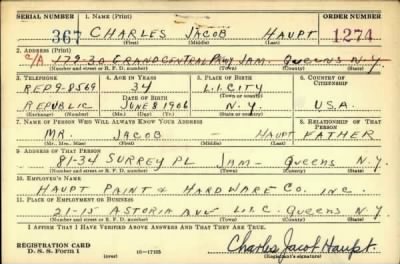 SERIAL NUMBER 1. NAME (Print) ORDER NUMBER
367 CHARLES JACOB HAUPT 1274
(First) (Middle) (Last)
2. ADDRESS (Print)
C/A 179-30 GRAND CENTRAL PKWY JAM. QUEENS N.Y.
(Number and street or R. F. D. number) (Town) (County) (State)
3. TELEPHONE 4. AGE IN YEARS 5. PLACE OF BIRTH 6. COUNTRY OF CITIZENSHIP
REP. 9-8569 34 L.I. CITY
DATE OF BIRTH (Town or county)
REPUBLIC JUNE 8 1906 N.Y. U.S.A.
(Exchange) (Number) (Mo.) (Day) (Yr.) (State or country)
7. NAME OF PERSON WHO WILL ALWAYS KNOW YOUR ADDRESS 8. RELATIONSHIP OF THAT PERSON
MR. JACOB — HAUPT FATHER
(Mr., Mrs., Miss) (First) (Middle) (Last)
9. ADDRESS OF THAT PERSON
81-34 SURREY PL JAM- QUEENS N.Y.
(Number and street or R. F. D. number) (Town) (County) (State)
10. EMPLOYER'S NAME
HAUPT PAINT & HARDWARE CO. INC.
11. PLACE OF EMPLOYMENT OR BUSINESS
21-15 ASTORIA AVE L.I.C. QUEENS N.Y.
(Number and street or R. F. D. number) (Town) (County) (State)
I AFFIRM THAT I HAVE VERIFIED ABOVE ANSWERS AND THAT THEY ARE TRUE.
REGISTRATION CARD
D. S. S. Form 1 (over) 16-17105 Charles Jacob Haupt
(Registrant's signature)